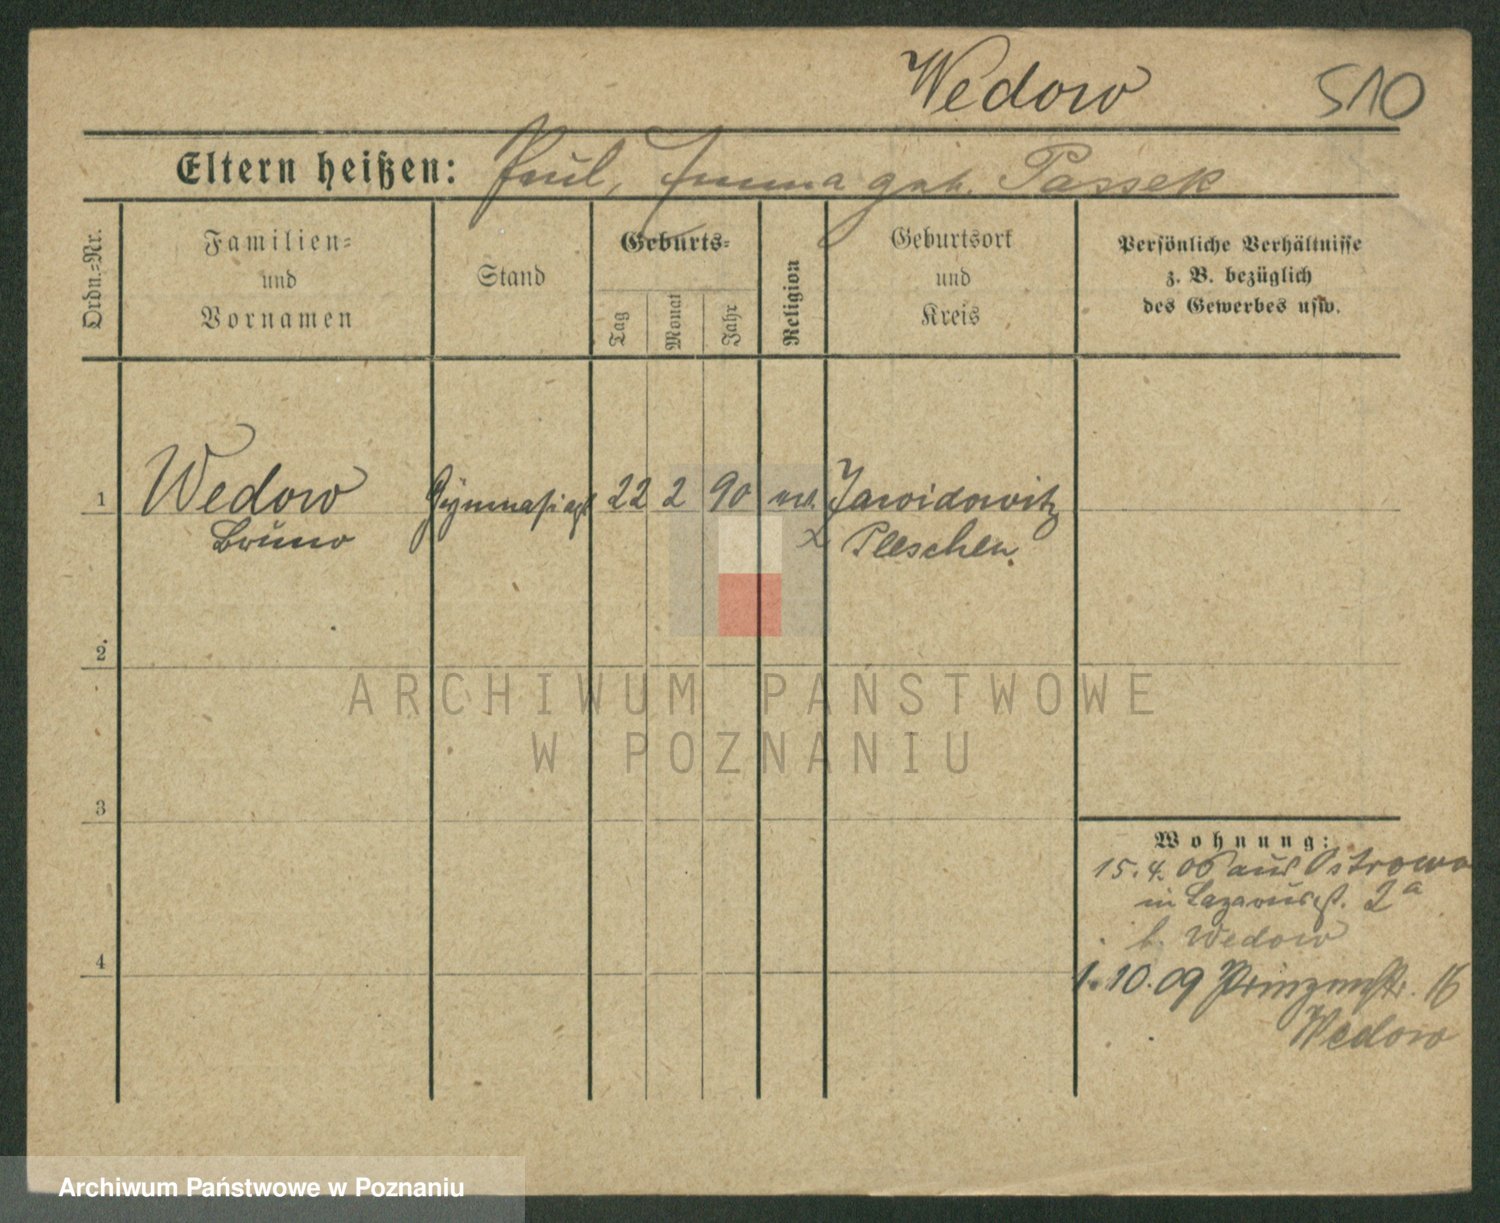 Wedow 510
Eltern heißen: Paul, Emma geb. Passek
Ordn.-Nr.
Familien-
und
Vornamen
Stand
Geburts-
Tag
Monat
Jahr
Religion
Geburtsort
und
Kreis
Persönliche Verhältnisse
z. B. bezüglich
des Gewerbes usw.
1 Wedow Gymnasiast 22 2 90 ev. Jawidowitz
Bruno Pleschen.
2.
3
4
Wohnung:
15.4.06 aus Ostrowo
in Lazarusst. 2a
b. Wedow
1.10.09 Prinzenstr. 16
Wedow
ARCHIWUM PAŃSTWOWE
W POZNANIU
Archiwum Państwowe w Poznaniu